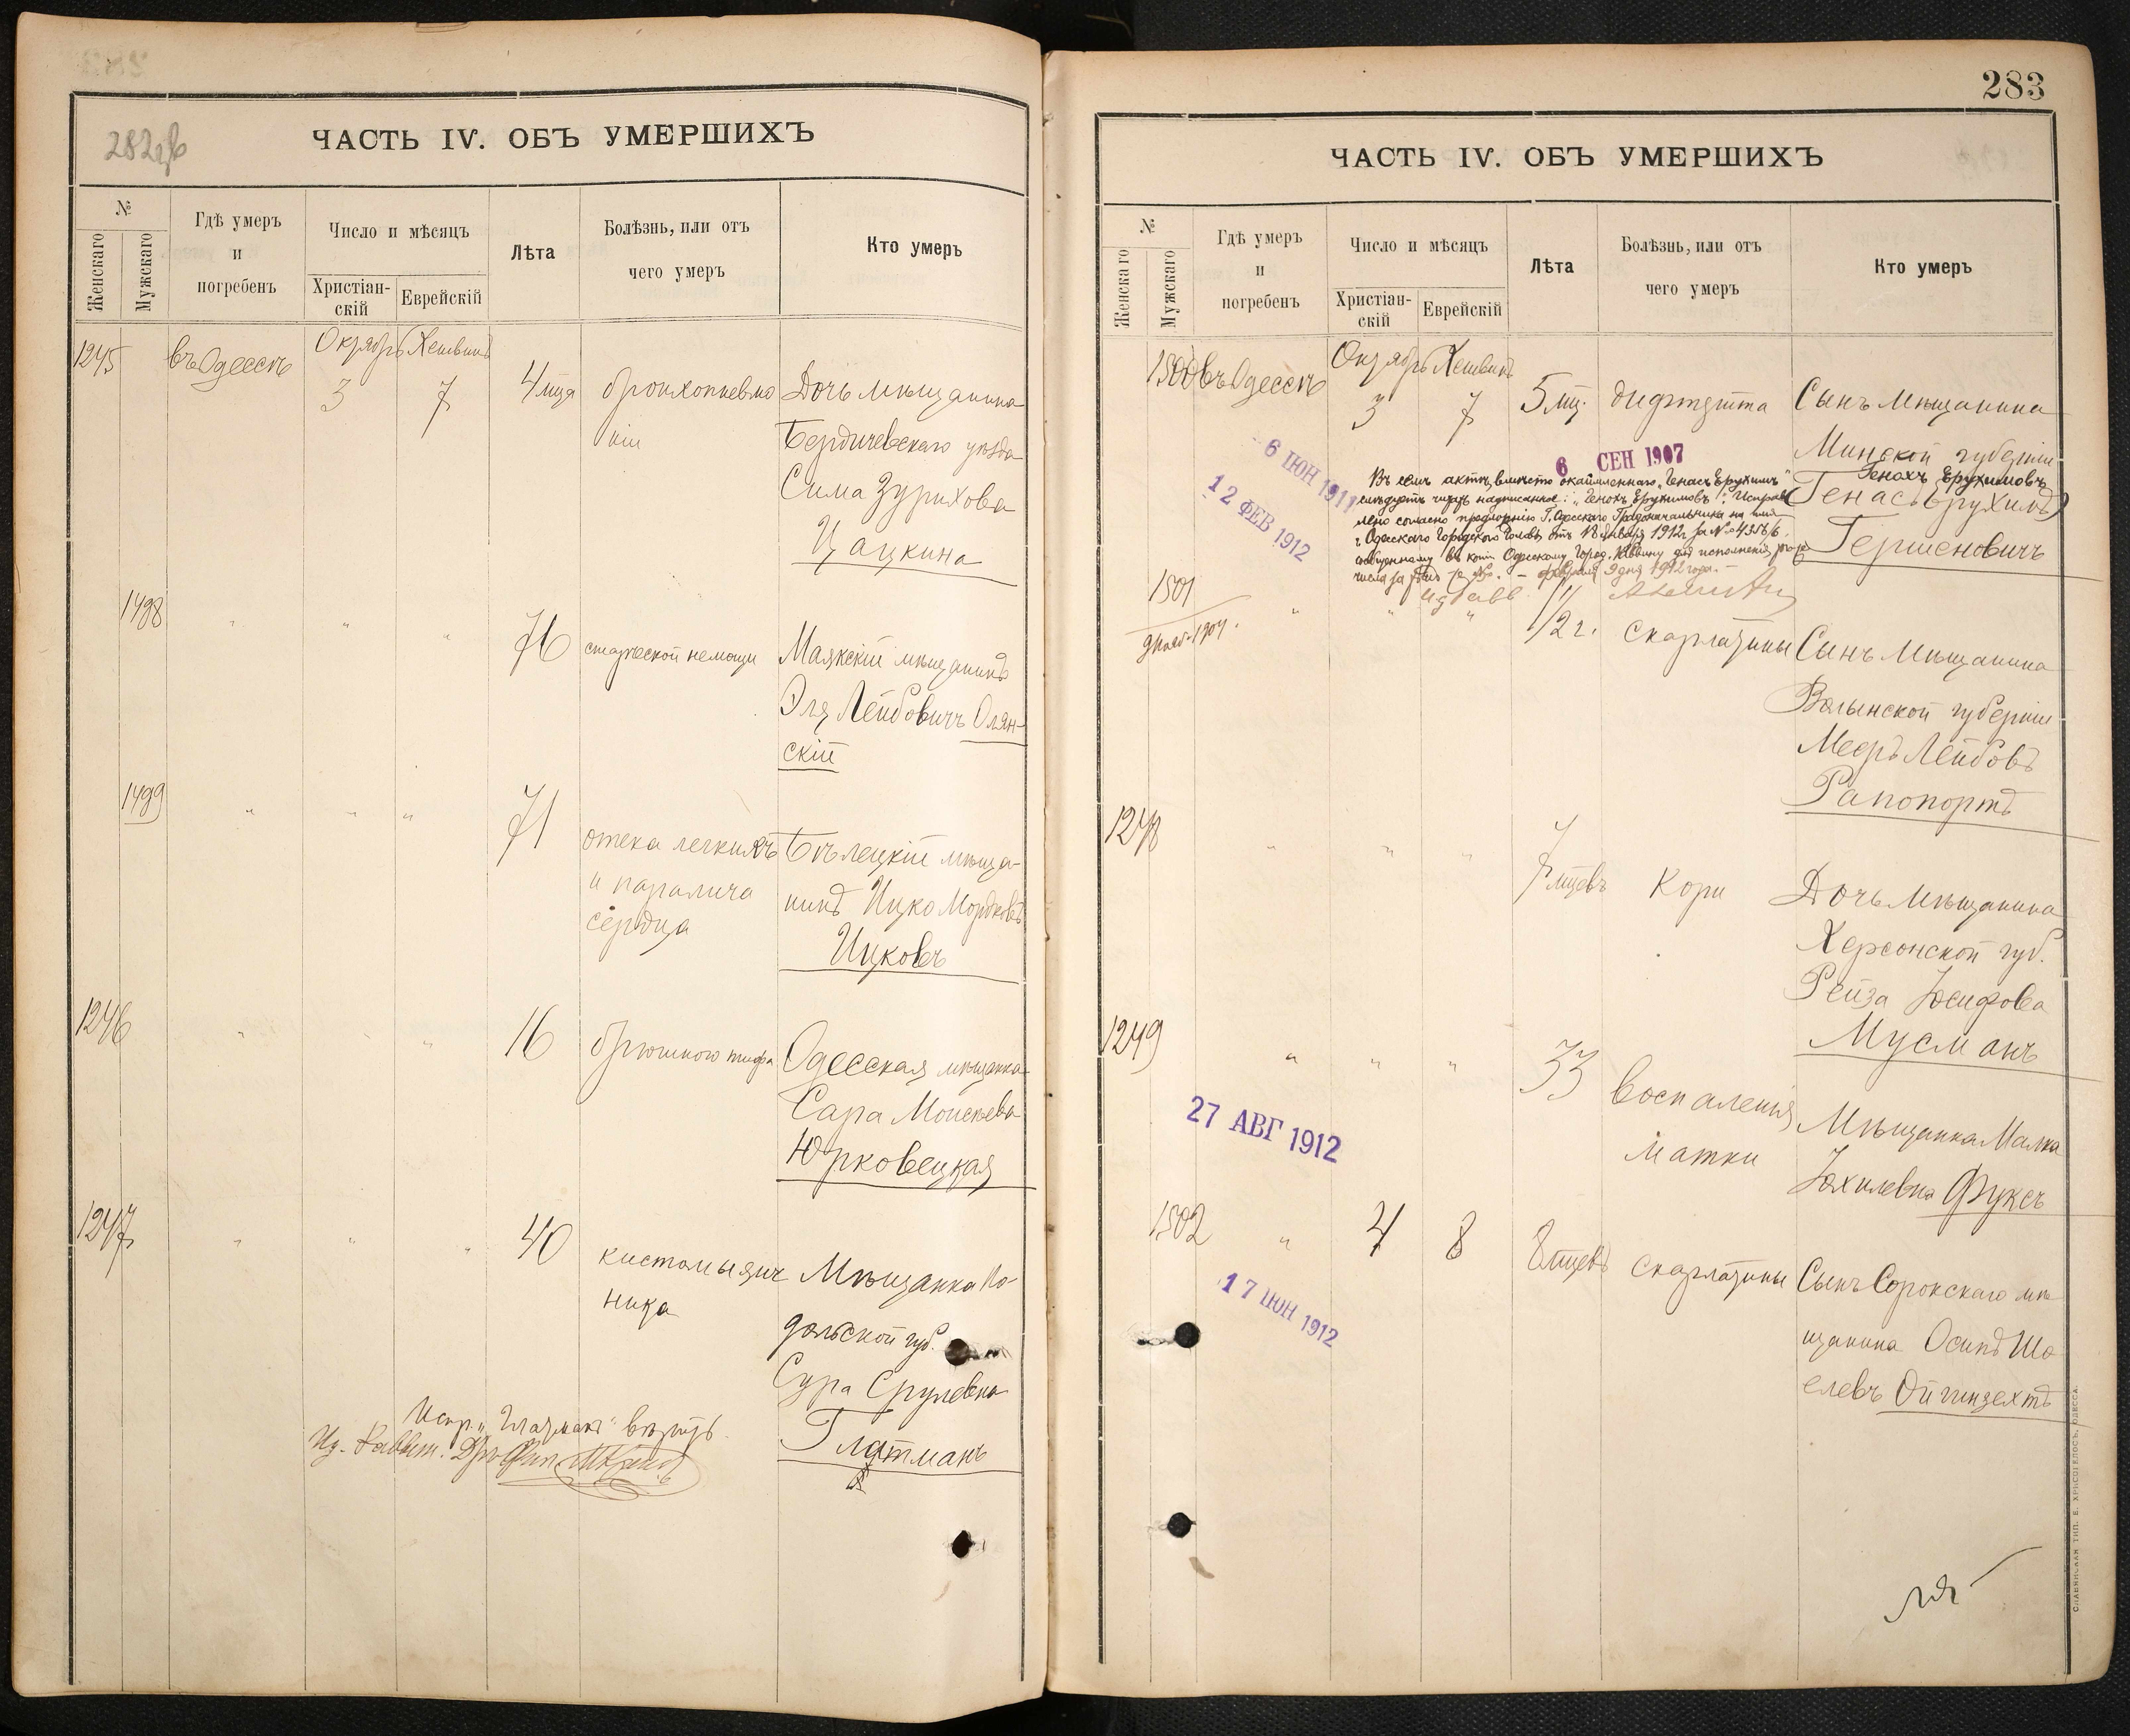 282 об
ЧАСТЬ IV. ОБЪ УМЕРШИХЪ
№
Женскаго
Мужскаго
Гдѣ умеръ
и
погребенъ
Число и мѣсяцъ
Христіан-
скій
Еврейскій
Лѣта
Болѣзнь, или отъ
чего умеръ
Кто умеръ
1245 въ Одессѣ Октябрь Хешвинъ
3 7 4 мца бронхопневмо Дочь мѣщанина
ніи Бердичевскаго уѣзда
Сима Зурихова
Цацкина
1498 " " " 76 старческой немощи Маякскій мѣщанинъ
Эля Лейбовичъ Олян-
скій
1499 " " " 71 отека легкихъ Бѣлецкій мѣща-
и паралича нинъ Ицко Мордковъ
сердца Ицковъ
1246 " " " 16 брюшного тифа Одесская мѣщанка
Сара Моисѣева
Юрковецкая
1247 " " " 40 кистомы яич Мѣщанка По-
ника дольской губ.
Сура Срулевна
Глатманъ
Испр. " " вѣрить
283
ЧАСТЬ IV. ОБЪ УМЕРШИХЪ
№
Женскаго
Мужскаго
Гдѣ умеръ
и
погребенъ
Число и мѣсяцъ
Христіан-
скій
Еврейскій
Лѣта
Болѣзнь, или отъ
чего умеръ
Кто умеръ
1500 въ Одессѣ Октябрь Хешвинъ
3 7 5 мц. дифтерита Сынъ мѣщанина
Минской губерніи
Генохъ Ерухимовъ
(Генасъ Ерухимъ)
Гершеновичъ
6 СЕН 1907
6 ІЮН 1911
12 ФЕВ 1912
Въ семъ актѣ, вмѣсто окаймленнаго "Генасъ Ерухимъ"
слѣдуетъ читать надписанное: "Генохъ Ерухимовъ". Исправ
лено согласно предложенію Г. Одесскаго Градоначальника на имя
г. Одесскаго Городского Головы отъ января 1912 г. за №
сообщенному въ копіи Одесскому Город. Раввину для исполненія
числа за № . – февраля 9 дня 1912 года. –
1501 " " " 1 1/2 г. скарлатины Сынъ мѣщанина
Волынской губерніи
Мееръ Лейбовъ
Рапопортъ
1248 " " " 7 мцевъ Кори Дочь мѣщанина
Херсонской губ.
Рейза Іосифова
Мусманъ
1249 " " " 33 воспаленія Мѣщанка Малка
матки Іохилевна Фуксъ
27 АВГ 1912
1502 " 4 8 8 мцевъ скарлатины Сынъ Сорокскаго мѣ
щанина Осипъ Шо
елевъ Ойгинзехтъ
17 ІЮН 1912
СЛАВЯНСКАЯ ТИП. Е. ХРИСОГЕЛОСЪ, ОДЕССА.